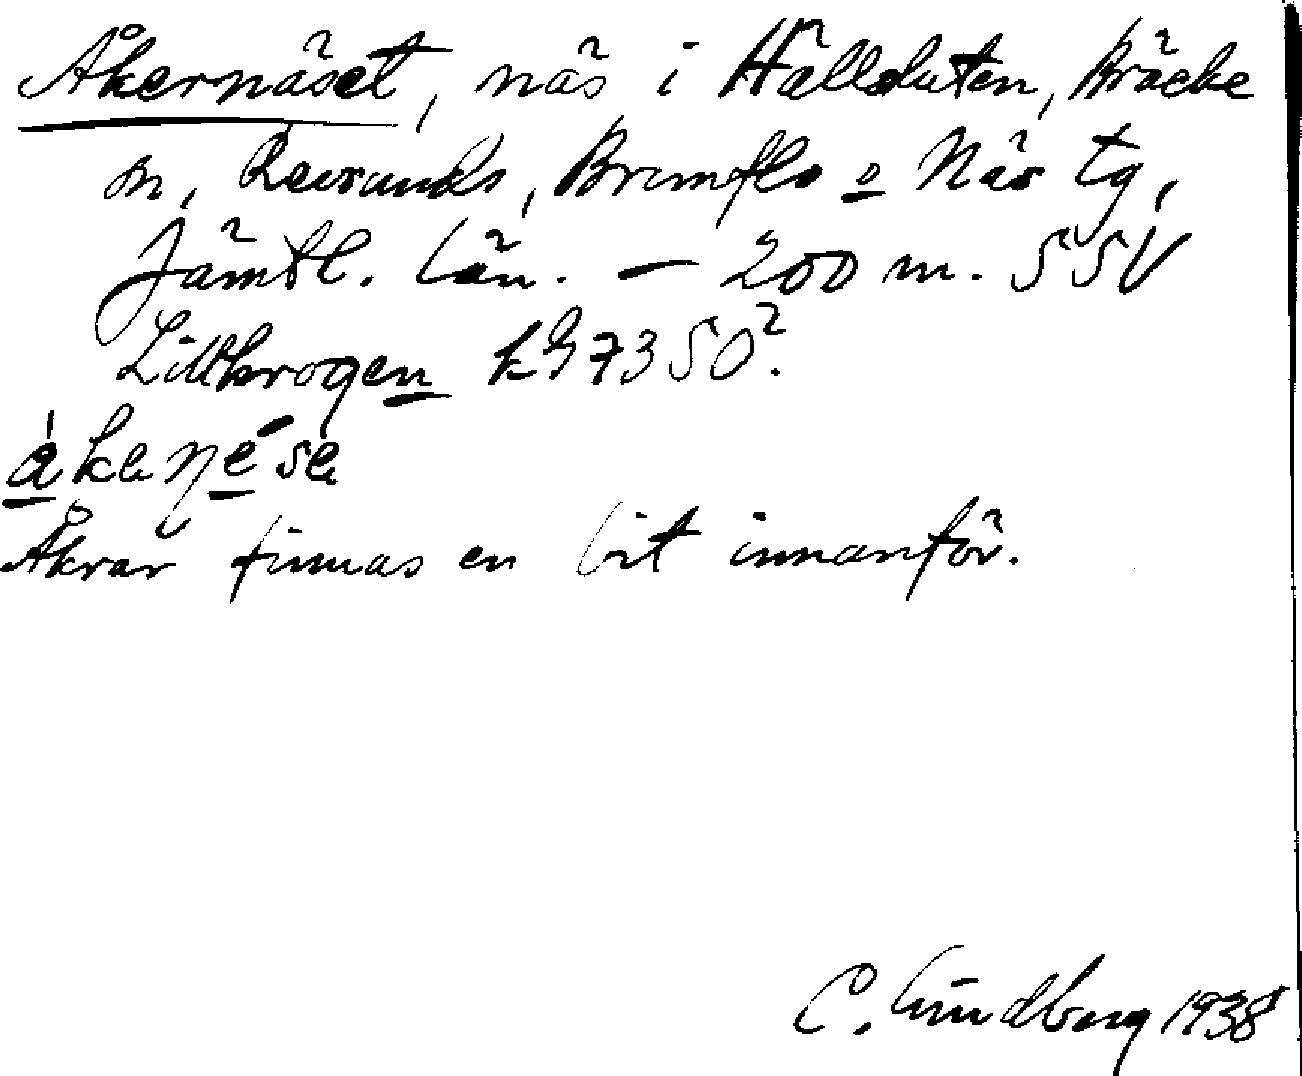 Åkernäset, näs i Hällsluten, Bräcke
sn, Revsunds, Brunflo o Näs tg,
Jämtl. län. – 200 m. SSV
Lillkrogen k 97350².
Åkrar finnas en bit innanför.
C. Lindberg 1938